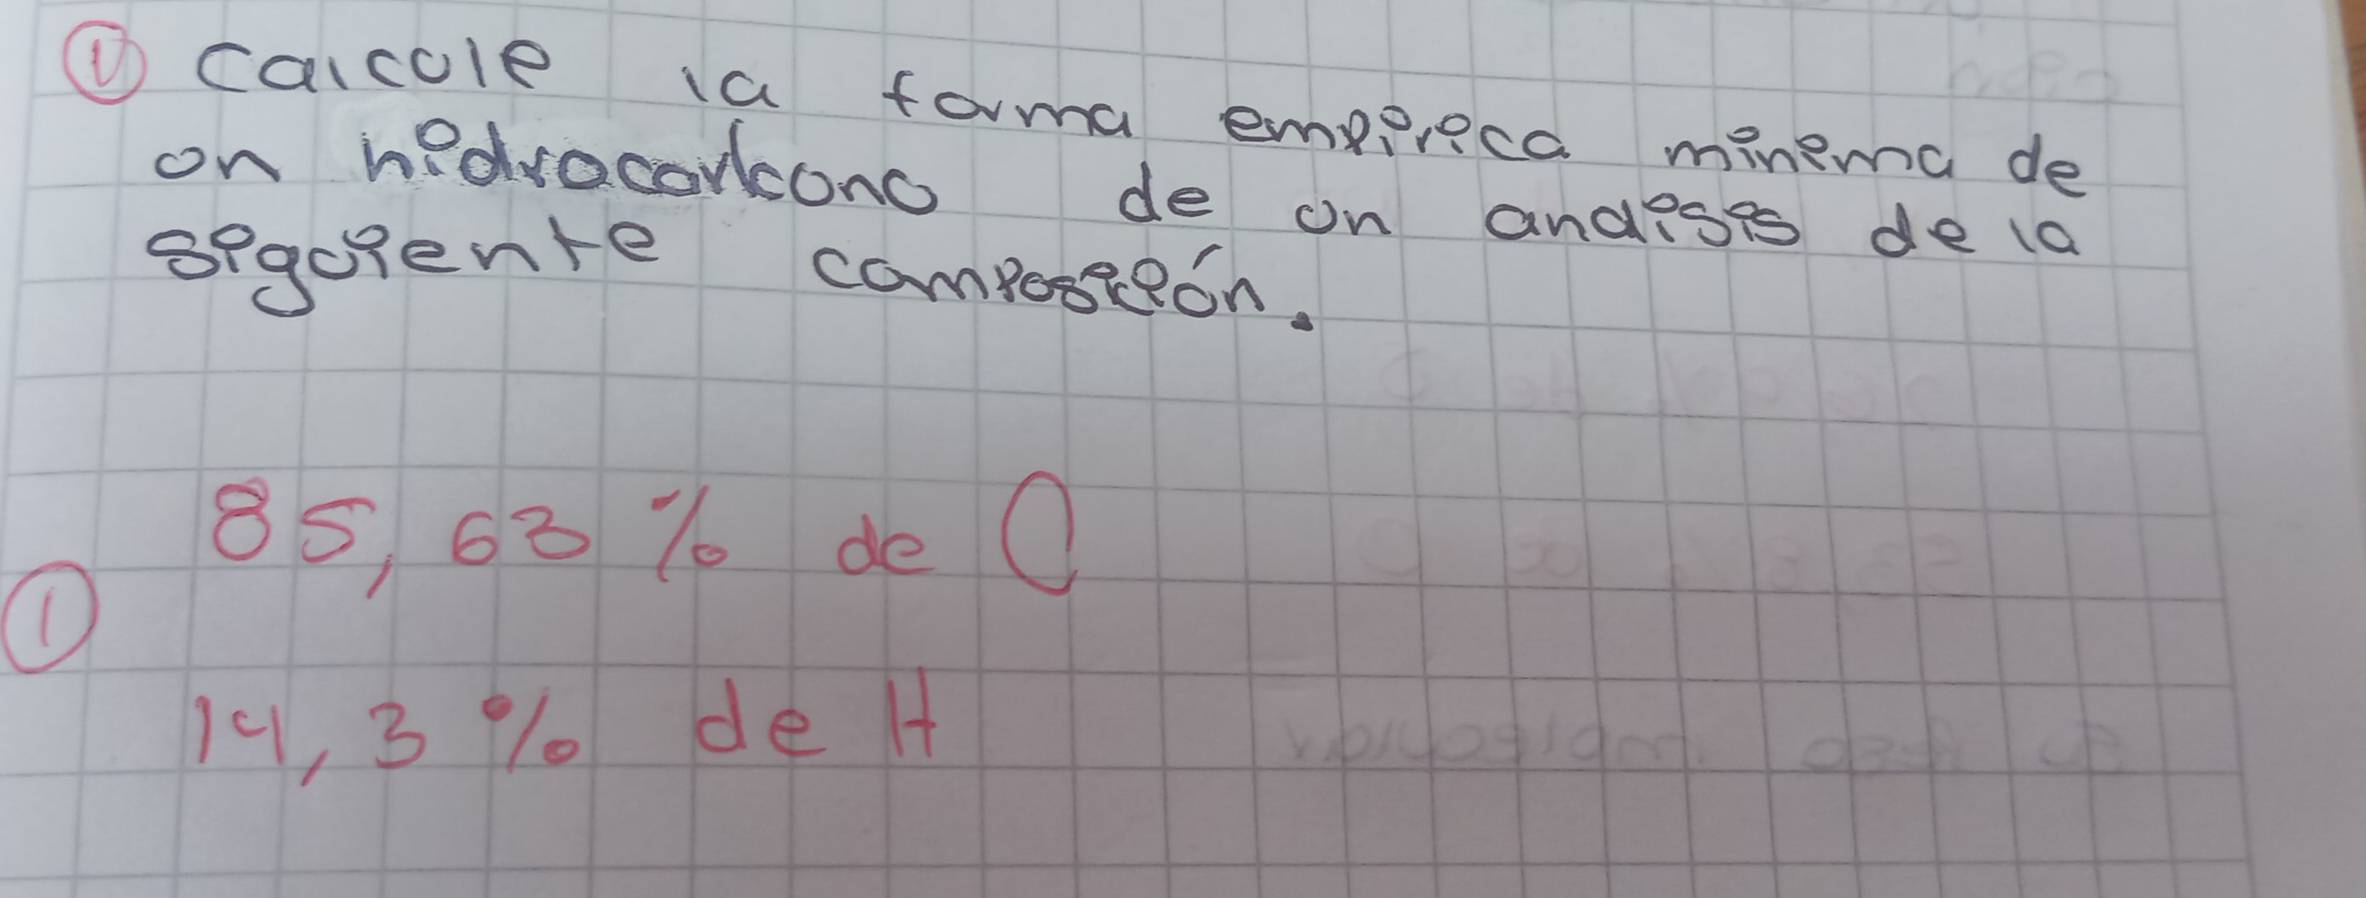 ① calcule la forma empirica minima de
un hidrocarbono de un analisis de la
siguiente composición.
85,63 % de C
①
14,3 % de H